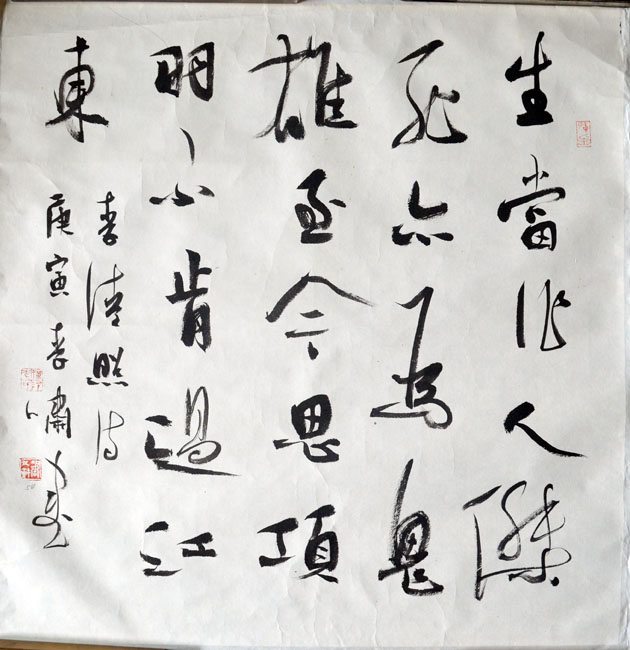 生當作人傑
死亦為鬼
雄至今思項
羽不肯過江
東
李清照诗
庚寅春嘯